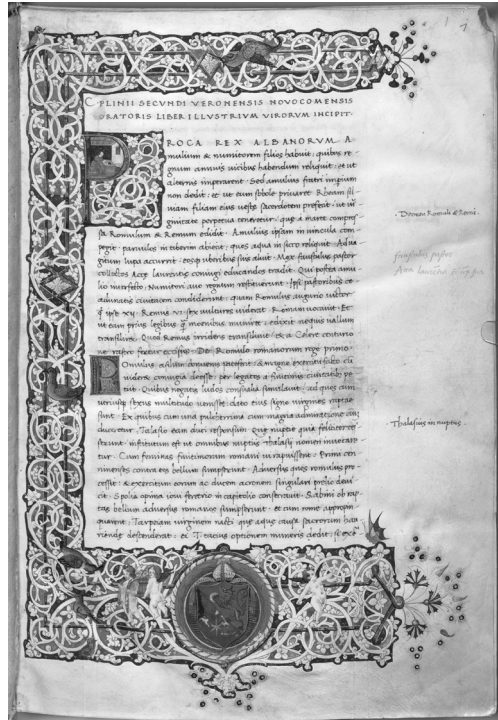 C· PLINII SECVNDI VERONENSIS NOVOCOMENSIS
ORATORIS LIBER ILLVSTRIVM VIRORVM INCIPIT·
PROCA REX ALBANORVM A
mulium & numitorem filios habuit· quibus re
gnum annuis vicibus habendum reliquit· & ut
alternis imperarent· Sed amulius fratri imperium
non dedit· & ut eum sobole privaret Rheam sil
viam filiam eius vestę sacerdotem prefecit· ut vi
ginitate perpetua teneretur· quę a marte compres
sa Romulum & Remum edidit· Amulius ipsam in vincula com
pegit· parvulos in tiberim abiecit· quos aqua in sicco reliquit· Ad va
gitum lupa accurrit· eosque uberibus suis aluit· Mox faustulus pastor
collectos Accę laurentię coniugi educandos tradidit· Qui postea amu
lio interfecto· Numitori avo regnum restituerunt· Ipsi pastoribus
adunatis civitatem condiderunt· quam Romulus augurio victor
Ut eam prius legibus quam moenibus muniret· edixit nequis vallum
transiliret· Quod Remus irridens transilivit· & a Celere centurio
ne rastro fertur occisus· De Romulo romanorum rege primo·
Romulus asilum convenis patefecit· & magno exercitu facto cum
videret coniugia deesse· per legatos a finitimis civitatibus pe
tiit· Quibus negatis ludos consualia simulavit· ad quos cum
utriusque sexus multitudo venisset· dato suis signo virgines raptae
sunt· Ex quibus cum una pulcherrima cum magna admiratione con
duceretur· Talasio eam duci responsum· quę nuptię quia feliciter ces
serunt· institutum est ut omnibus nuptiis Thalasii nomen iteraretur·
Cum feminas finitimorum romani vi rapuissent· Primi ceni
ninenses contra eos bellum sumpserunt· Adversus quos romulus pro
cessit· & exercitum eorum ac ducem acronem singulari prelio devi
cit· Spolia opima iovi feretrio in capitolio consecravit· Sabini ob rap
tas bellum adversus romanos sumpserunt· et cum rome appropin
quarent· Tarpeiam virginem nacti quę aquę causa sacrorum hau
riendę descenderat· ei T· tacius optionem muneris dedit·
Thalasius in nuptiis·